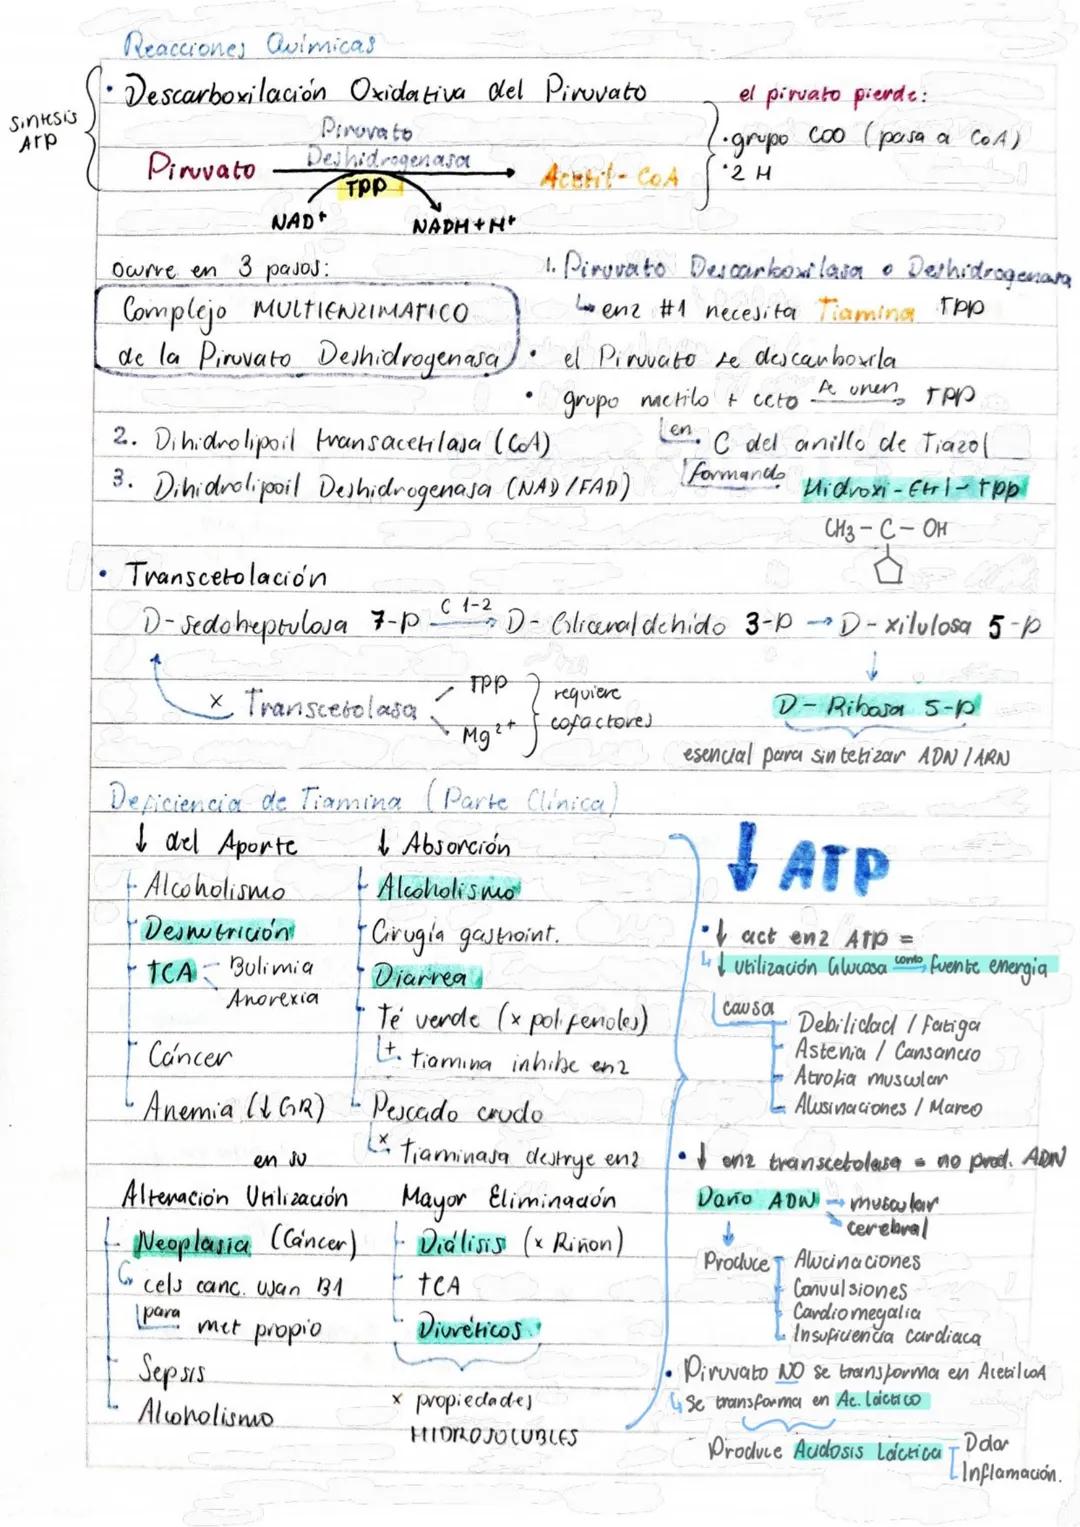 Reacciones Químicas
Síntesis ATP
• Descarboxilación Oxidativa del Piruvato
Piruvato
Deshidrogenasa
Piruvato → Acetil-CoA
TPP
NAD+ NADH+H+
el piruvato pierde:
• grupo COO (pasa a CoA)
• 2 H
ocurre en 3 pasos:
Complejo MULTIENZIMATICO
de la Piruvato Deshidrogenasa
1. Piruvato Descarboxilasa o Deshidrogenasa
↳ enz #1 necesita Tiamina TPP
• el Piruvato se descarboxila
• grupo metilo + ceto se unen → TPP
en C del anillo de Tiazol
formando Hidroxi-Etil-TPP
CH3 - C - OH
2. Dihidrolipoil transacetilasa (CoA)
3. Dihidrolipoil Deshidrogenasa (NAD/FAD)
• Transcetolación
D-sedoheptulosa 7-p C 1-2 → D-Gliceraldehido 3-p → D-xilulosa 5-p
x Transcetolasa
TPP
Mg2+
requiere
cofactores
D-Ribosa 5-p
esencial para sintetizar ADN/ARN
Deficiencia de Tiamina (Parte Clínica)
↓ del Aporte
Alcoholismo
Desnutrición
TCA
Bulimia
Anorexia
Cáncer
Anemia (↓GR)
↓ Absorción
Alcoholismo
Cirugía gastroint.
Diarrea
Té verde (x polifenoles)
+ tiamina inhibe enz
Pescado crudo
x Tiaminasa destrye enz
en su
Alteración Utilización
Neoplasia (Cáncer)
cels canc. usan B1
para met propio
Sepsis
Alcoholismo
Mayor Eliminación
Diálisis (x Riñon)
TCA
Diuréticos
x propiedades
HIDROSOLUBLES
↓ ATP
• ↓ act enz ATP =
↳ ↓ utilización Glucosa como fuente energia
causa
Debilidad / Fatiga
Astenia / Cansancio
Atrofia muscular
Alusinaciones / Mareo
• ↓ enz transcetolasa = no prod. ADN
Daño ADN → muscular
cerebral
Produce
Alucinaciones
Convulsiones
Cardiomegalia
Insuficiencia cardiaca
• Piruvato NO se transforma en AcetilcoA
↳ Se transforma en Ac. láctico
Produce Acidosis Láctica
Dolor
Inflamación.